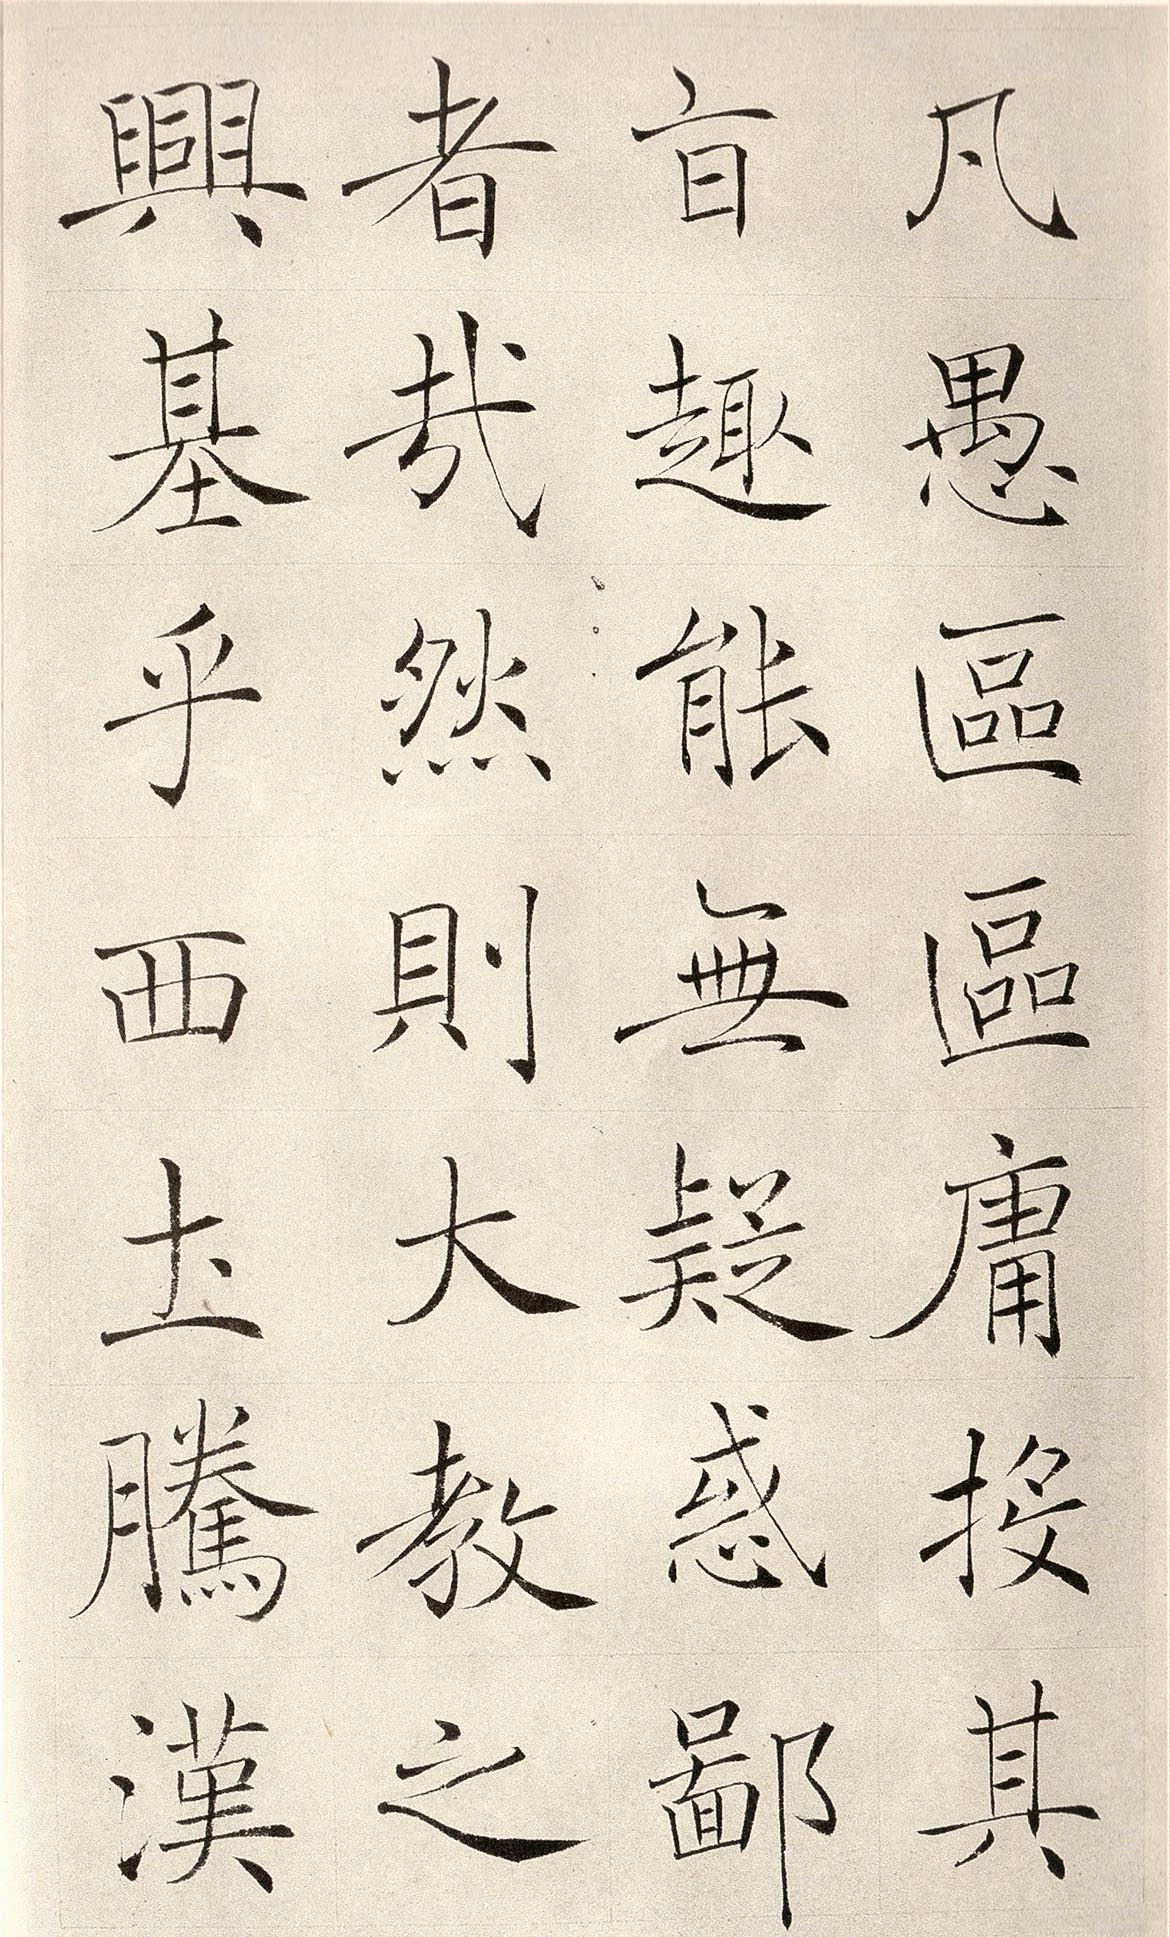 凡愚區區庸投其
盲趣能無疑惑鄙
者哉然則大教之
興基乎西土騰漢